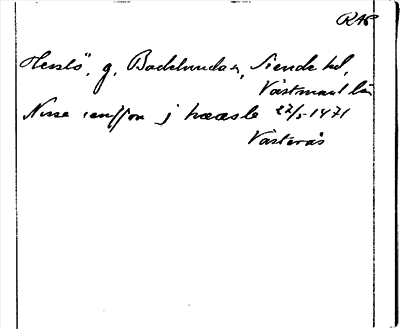 RAP
Hesslö, g, Badelunda sn, Siende hd,
Västmanl län
Nisse iensson j hææsle 27/5 1471
Västerås